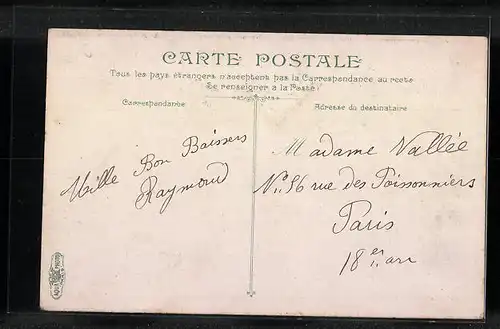 CARTE POSTALE
Tous les pays étrangers n'acceptent pas la Correspondance au recto
Se renseigner a la Poste
Correspondance
Adresse du destinataire
Mille Bon Baisers
Raymond
Madame Vallée
No 56 rue des Poissonniers
Paris
18er arr